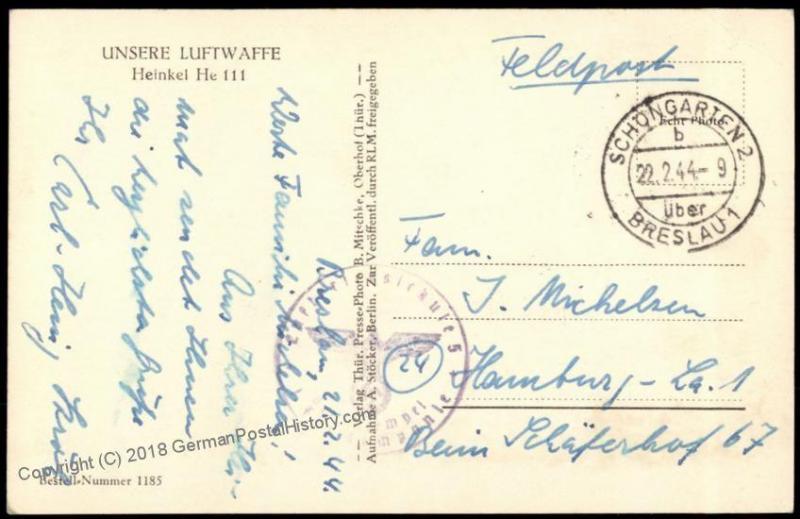 UNSERE LUFTWAFFE
Heinkel He 111
Breslau, 21.2.44.
Werte Familie Michelsen!
Aus Ihrer Hei-
mat sendet Ihnen
die herzlichsten Grüße
Ihr Carl-Heinz
Bestell-Nummer 1185
Verlag Thür. Presse-Photo B. Mitschke, Oberhof (Thür.)
Aufnahme A. Stöcker, Berlin. Zur Veröffentl. durch RLM. freigegeben
Feldpost
Echt Photo
SCHÖNGARTEN 2
b
22.2.44.-9
über
BRESLAU 1
Fam.
J. Michelsen
24
Hamburg-La. 1
Beim Schäferhof 67
Copyright (C) 2018 GermanPostalHistory.com